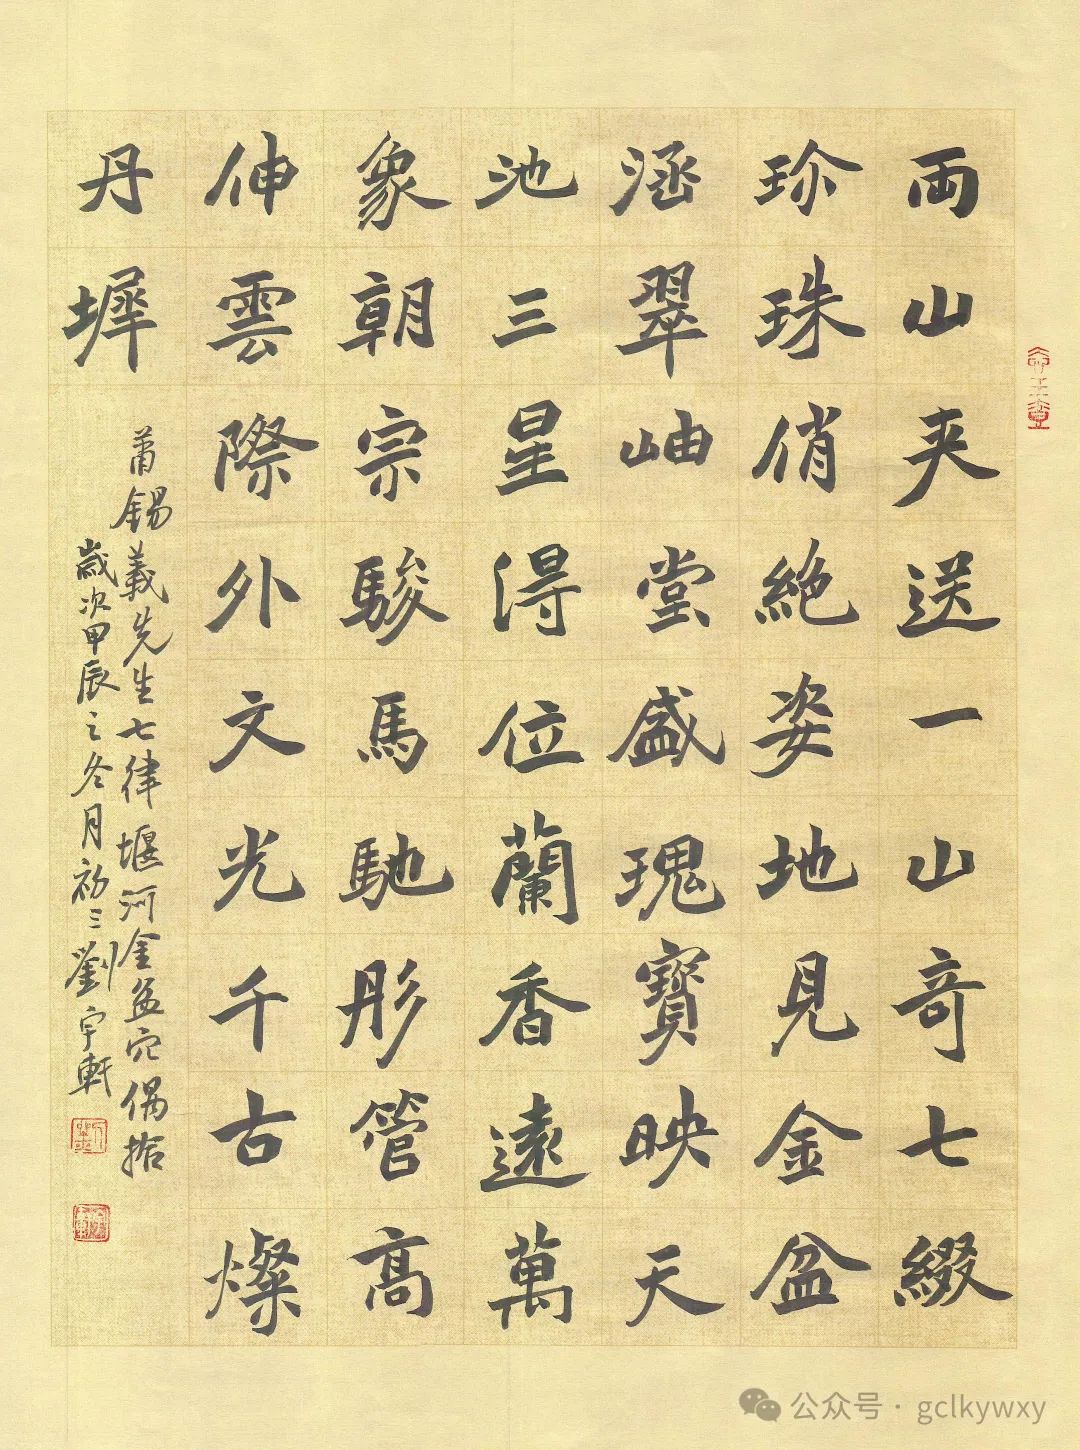 両山夹送一山奇七綴
珍珠俏絶姿地見金盆
涵翠岫堂盛瑰寶映天
池三星得位蘭香遠萬
象朝宗駿馬馳彤管高
伸雲際外文光千古燦
丹墀
莆錫義先生七律堰河金盆穴偶拾
歲次甲辰之冬月初三劉宇軒
公众号·gclkywxy